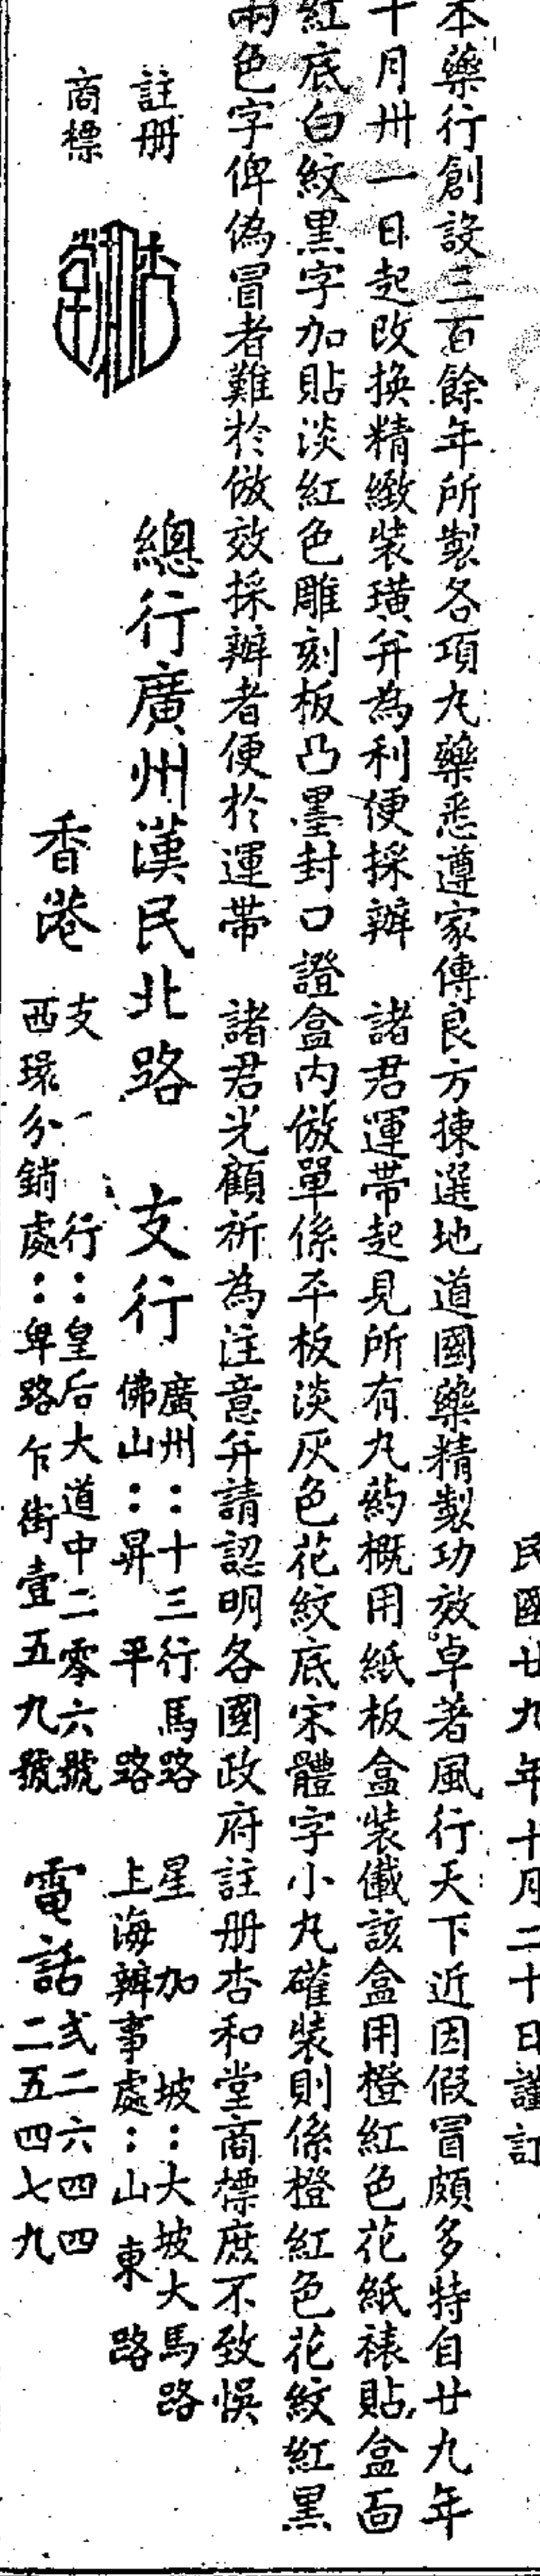 民國廿九年十月二十日謹訂
本藥行創設三百餘年所製各項丸藥悉遵家傳良方揀選地道國藥精製功效卓著風行天下近因假冒頗多特自廿九年
十月卅一日起改換精緻裝璜并為利便採辦 諸君運帶起見所有丸葯概用紙板盒裝儎該盒用橙紅色花紙裱貼盒面
紅底白紋黑字加貼淡紅色雕刻板凸墨封口證盒內倣單係平板淡灰色花紋底宋體字小丸確裝則係橙紅色花紋紅黑
兩色字俾偽冒者難於倣效採辦者便於運帶 諸君光顧祈為注意并請認明各國政府註册杏和堂商標庶不致悞
註册
商標
杏和堂
總行廣州漢民北路 支行
廣州:十三行馬路
佛山:昇平路
星加坡:大坡大馬路
上海辦事處:山東路
香港
支行:皇后大道中二零六號
西環分銷處:卑路乍街壹五九號
電話
弍二六四四
二五四七九